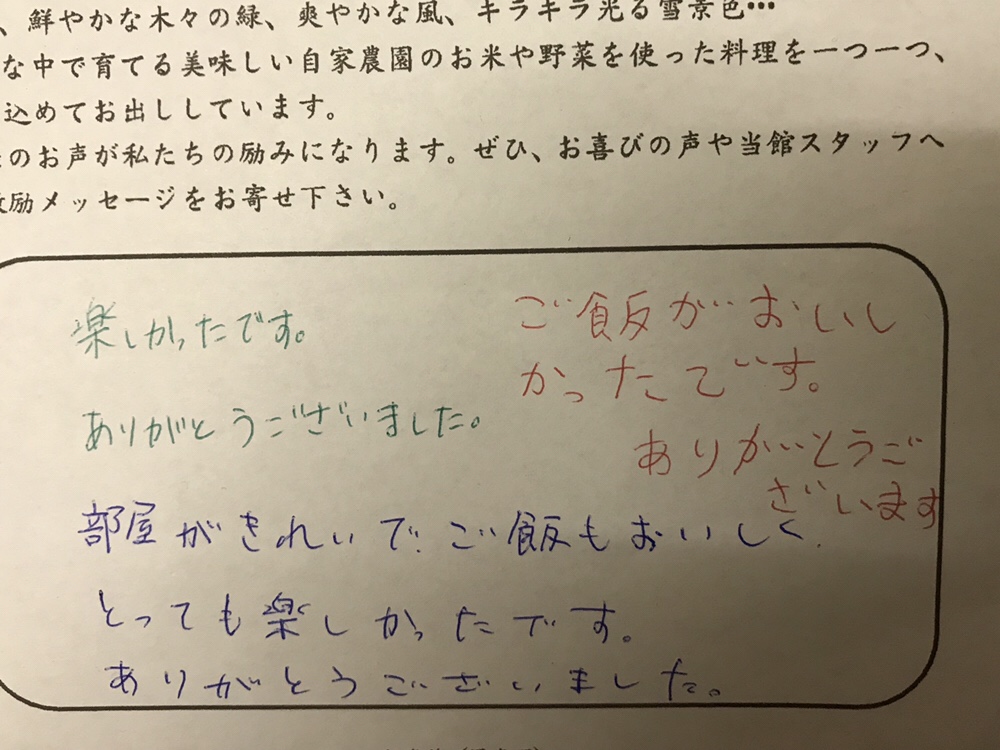 、鮮やかな木々の緑、爽やかな風、キラキラ光る雪景色…
な中で育てる美味しい自家農園のお米や野菜を使った料理を一つ一つ、
込めてお出ししています。
のお声が私たちの励みになります。ぜひ、お喜びの声や当館スタッフへ
激励メッセージをお寄せ下さい。
楽しかったです。
ありがとうございました。
ご飯がおいし
かったです。
ありがとうご
ざいます
部屋がきれいで、ご飯もおいしく、
とっても楽しかったです。
ありがとうございました。